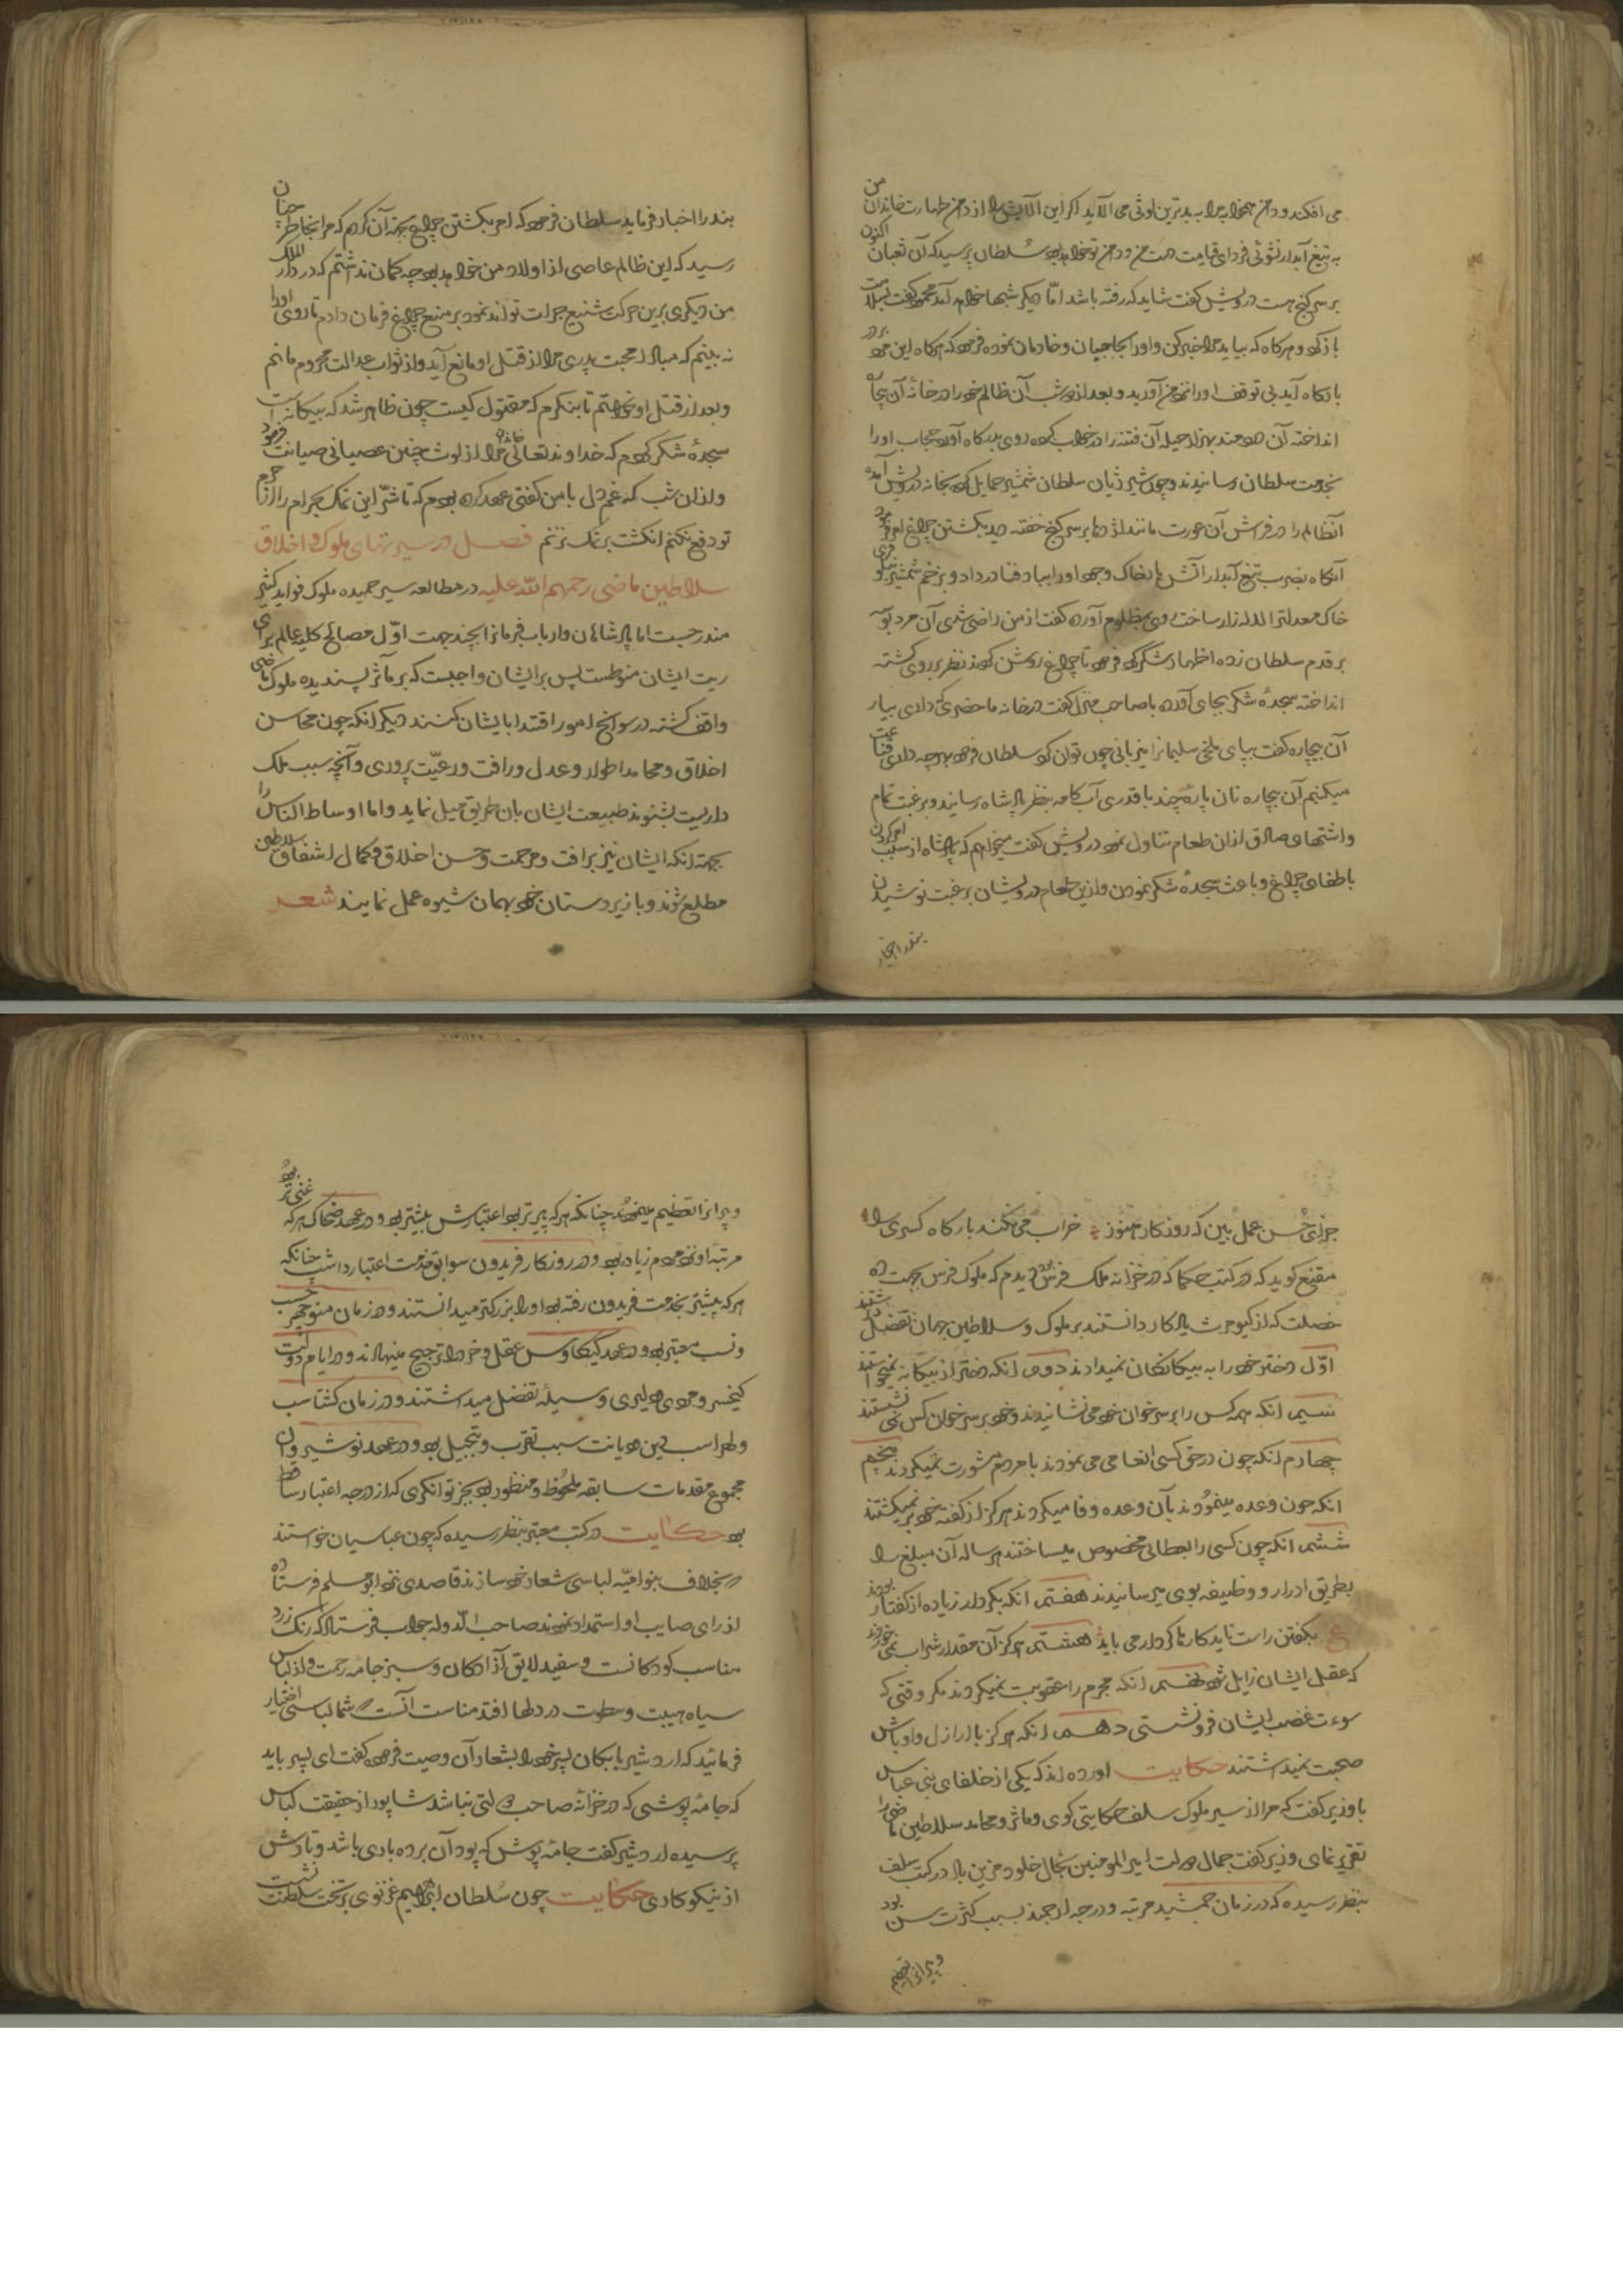 می افکند و دامن همخوابه مرا به بدترین لوثی می آلاید اگر این آلایش را از دامن طهارت خاندان من
به تیغ آبدار نشوئی فردای قیامت دست من و دامن تو خواهد بود سلطان پرسید که آن ثعبان اکنون
بر سر گنج هست درویش گفت شاید که رفته باشد اما دیگر شبها خواهد آمد محمود گفت بسلامت
باز گرد و هرگاه که بیاید مرا خبر کن و او را بحاجبان و خادمان نموده فرمود که هرگاه این مرد بر در
بارگاه آید بی توقف او را نزد من آورید و بعد از دو شب آن ظالم خود را در خانه آن بیچاره
انداخته آن هنرمند بهزار حیله آن فتنه را در خواب کرده روی بدرگاه آورد حجاب او را
بخدمت سلطان رسانیدند و چون شیر ژیان سلطان شمشیر حمایل کرده بخانه درویش آمده
آن ظالم را در فراش آن عورت مانند اژدها بر سر گنج خفته دید بکشتن چراغ امر فرمود
آنگاه بضرب تیغ آبدار آتش نهاد خاک وجود او را بباد فنا در داد و بزخم شمشیر نیلوفری
خاک معدلت را لاله زار ساخت روی بمظلوم آورده گفت از من راضی شدی آن مرد بوسه
بر قدم سلطان زده اظهار شکر کرد فرمود تا چراغ روشن کردند نظر بر روی کشته
انداخته سجده شکر بجای آورده با صاحب منزل گفت در خانه ماحضری که داری بیار
آن بیچاره گفت بپای ملخی سلیمان را میزبانی چون توان کرد سلطان فرمود بهر چه داری قناعت
میکنم آن بیچاره نان پارهٔ چند با قدری آب کامه بنظر پادشاه رسانید و برغبت تمام
و اشتهای صادق از آن طعام تناول نمود درویش گفت میخواهم که پادشاه از سبب امر کردن
باطفای چراغ و باعث سجده شکر نمودن و ازین طعام درویشان برغبت نوشیدن
بنده را اخبار
بنده را اخبار فرماید سلطان فرمود که امر بکشتن چراغ بجهة آن کردم که مرا بخاطر چنان
رسید که این ظالم عاصی از اولاد من خواهد بود چه گمان نداشتم که در دار الملک
من دیگری برین حرکت شنیع جرات تواند نمود بر منع چراغ فرمان دادم تا روی او را
نه بینم که مبادا محبت پدری مرا از قتل او مانع آید و از ثواب عدالت محروم مانم
و بعد از قتل او خواستم تا بنگرم که مقتول کیست چون ظاهر شد که بیگانه است
سجدهٔ شکر کردم که خداوند تعالی خاندان مرا از لوث چنین عصیانی صیانت فرمود
و از آن شب که غم دل با من گفتی عهد کرده بودم که تا شر این نمک بحرام را از حرم
تو دفع نکنم انگشت بر نمک نزنم فصل در سیرتهای ملوک و اخلاق
سلاطین ماضی رحمهم الله علیه در مطالعه سیر حمیده ملوک فواید کثیر
مندرجست اما پادشاهان و ارباب فرمانرا بچند جهت اول مصالح کلیه عالم برای
ریت ایشان منوطست پس بر ایشان واجبست که بر مآثر پسندیده ملوک ماضی
واقف گشته در سوانح امور اقتدا بایشان کنند دیگر آنکه چون محاسن
اخلاق و محامد اطوار و عدل و رافت و رعیت پروری و آنچه سبب ملک
داریست بشنوند طبیعت ایشان بآن طریق میل نماید و اما اوساط الناس را
بجهة آنکه ایشان نیز بر رافت و مرحمت و حسن اخلاق و کمال اشفاق سلاطین
مطلع شوند و با زیردستان خود بهمان شیوه عمل نمایند شعر
جزای حسن عمل بین که روزگار هنوز خراب می نکند بارگاه کسری را
مقنع گوید که در کتب حکما که در خزانه ملک فرس بود دیدم که ملوک فرس بجهت ده
خصلت که از کیومرث یادگار داشتند بر ملوک و سلاطین جهان تفضل داشتند
اول دختر خود را به بیگانگان نمیدادند دوم آنکه دختر از بیگانه نمیخواستند
سیم آنکه همه کس را بر سر خوان خود می نشانیدند و خود بر سر خوان کس نمی نشستند
چهارم آنکه چون در حق کسی انعامی می نمودند با مردم مشورت نمیکردند پنجم
آنکه چون وعده مینمودند بآن وعده وفا میکردند هرگز از گفته خود بر نمیگشتند
ششم آنکه چون کسی را بعطائی مخصوص میساختند هر ساله آن مبلغ را
بطریق ادرار و وظیفه بوی میرسانیدند هفتم آنکه بکردار زیاده از گفتار بودند
ع بگفتن راست ناید کارها کردار می باید هشتم هرگز آن مقدار شراب نمی خوردند
که عقل ایشان زایل شود نهم آنکه مجرم را عقوبت نمیکردند مگر وقتی که
سورت غضب ایشان فرونشستی دهم آنکه هرگز با ارازل و اوباش
صحبت نمیداشتند حکایت آورده اند که یکی از خلفای بنی عباس
با وزیر گفت که مرا از سیر ملوک سلف حکایتی گوی و مآثر و محامد سلاطین ماضی را
تقریر نمای وزیر گفت جمال دولت امیر المومنین بحال خلود مزین باد در کتب سلف
بنظر رسیده که در زمان جمشید مرتبه و درجه ارجمند بسبب کثرت سن بود
و پیرانرا تعظیم
و پیرانرا تعظیم مینمودند چنانکه هر که پیرتر بود اعتبارش بیشتر بود و در عهد ضحاک هر که غنی تر بود
مرتبه او نزد مردم زیاد بود و در روزگار فریدون سوابق خدمت اعتبار داشت چنانکه
هر که پیشتر بخدمت فریدون رفته بود او را بزرگتر میدانستند و در زمان منوچهر حسب
و نسب معتبر بود و در عهد کیکاوس عقل و خرد را ترجیح مینهادند و در ایام دولت
کیخسرو مردی و دلیری وسیلهٔ تفضل میداشتند و در زمان گشتاسب
و لهراسب دین و دیانت سبب تقرب و تبجیل بود و در عهد نوشیروان
مجموع مقدمات سابقه ملحوظ و منظور بود بجز توانگری که از درجه اعتبار ساقط
بود حکایت در کتب معتبر بنظر رسیده که چون عباسیان خواستند
بخلاف بنو امیه لباسی شعار خود سازند قاصدی نزد ابو مسلم فرستاده
از رای صایب او استمداد نمودند صاحب الدوله جواب فرستاد که رنگ زرد
مناسب کودکانست و سفید لایق آزادگان و سبز جامه رحمت و از لباس
سیاه هیبت و سطوت در دلها افتد مناسب آنست که شما لباسی اختیار
فرمائید که اردشیر بابکان پسر خود را بشعار آن وصیت فرمود گفت ای پسر باید
که جامهٔ پوشی که در خزانه صاحب دولتی نباشد شاپور از حقیقت لباس
پرسید اردشیر گفت جامهٔ پوش که پود آن بردباری باشد و تارش
از نیکوکاری حکایت چون سلطان ابراهیم غزنوی بر تخت سلطنت نشست